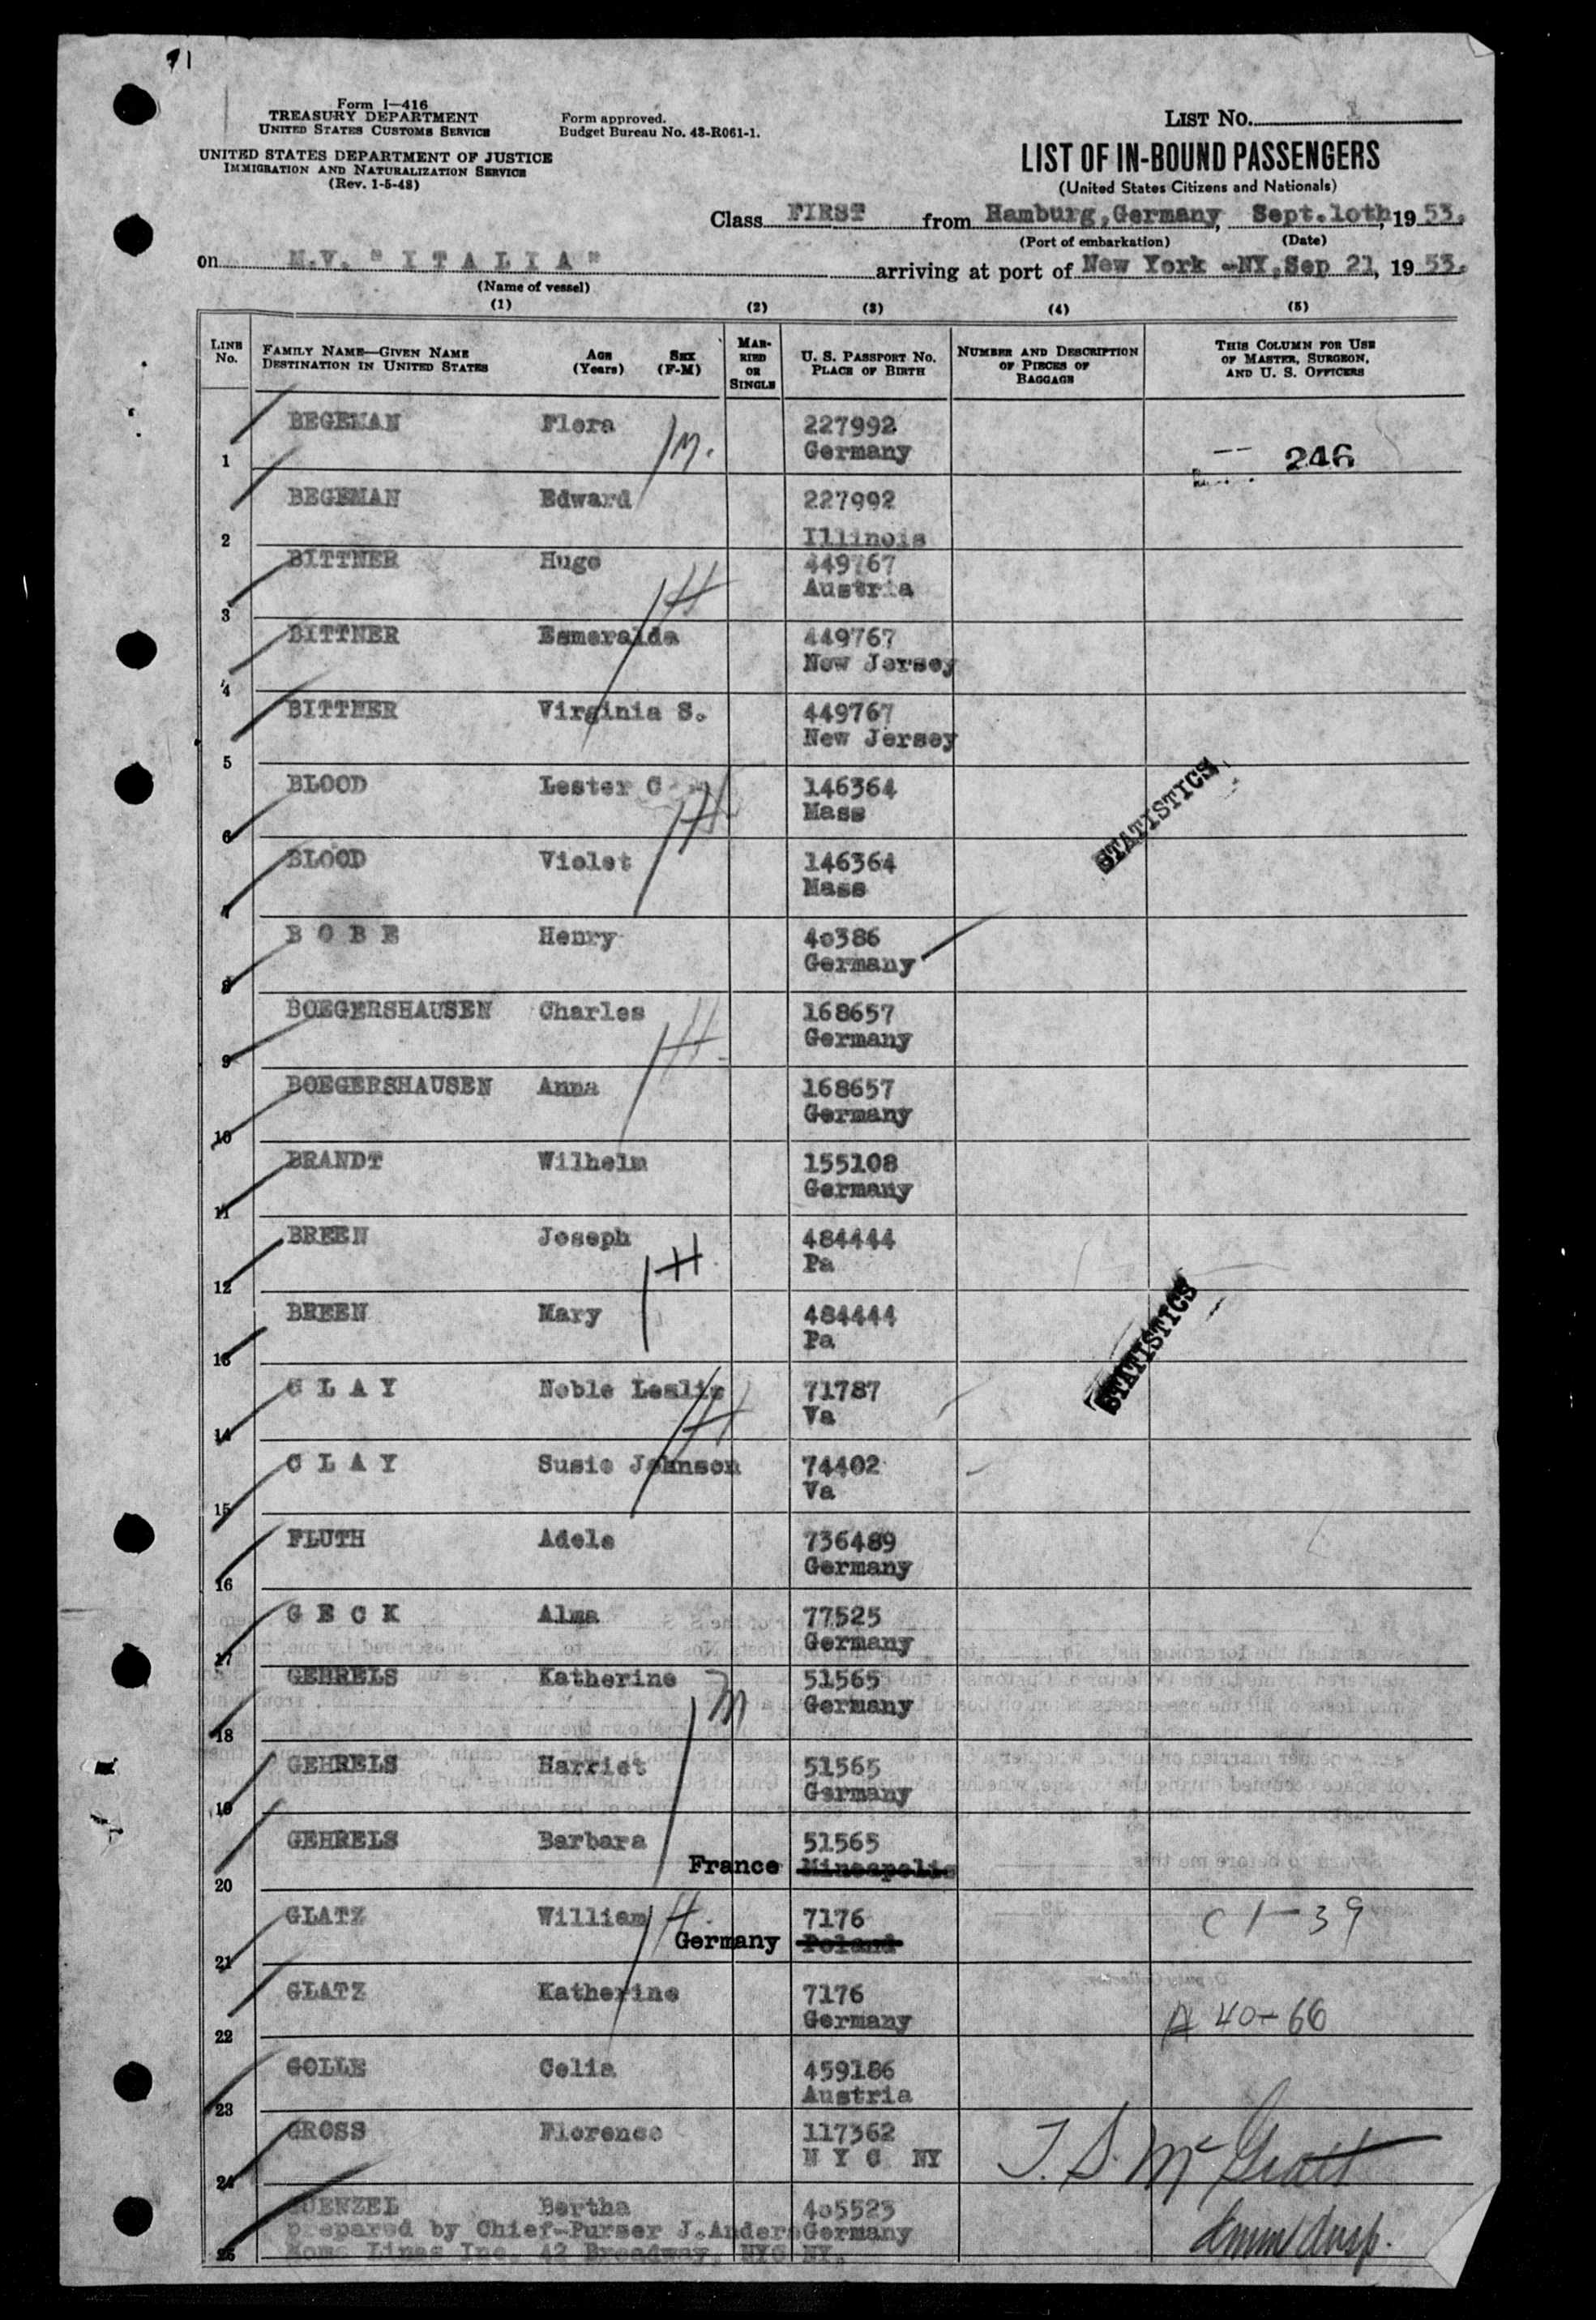 91
Form I—416
TREASURY DEPARTMENT
UNITED STATES CUSTOMS SERVICE
UNITED STATES DEPARTMENT OF JUSTICE
IMMIGRATION AND NATURALIZATION SERVICE
(Rev. 1-5-48)
Form approved.
Budget Bureau No. 43-R061-1.
LIST No. 1
LIST OF IN-BOUND PASSENGERS
(United States Citizens and Nationals)
Class FIRST from Hamburg,Germany, Sept.1oth, 19 53.
(Port of embarkation) (Date)
on M.V. "ITALIA" arriving at port of New York -NY,Sep 21, 19 53.
(Name of vessel)
(1) (2) (3) (4) (5)
LINE No. FAMILY NAME—GIVEN NAME DESTINATION IN UNITED STATES AGE (Years) SEX (F-M) MARRIED OR SINGLE U. S. PASSPORT No. PLACE OF BIRTH NUMBER AND DESCRIPTION OF PIECES OF BAGGAGE THIS COLUMN FOR USE OF MASTER, SURGEON, AND U. S. OFFICERS
BEGEMAN Flora M. 227992
1 Germany 246
BEGEMAN Edward 227992
2 Illinois
BITTNER Hugo 449767
3 H Austria
BITTNER Esmeralda 449767
4 New Jersey
BITTNER Virginia S. 449767
5 New Jersey
BLOOD Lester C 146364
6 H Mass STATISTICS
BLOOD Violet 146364
7 Mass
B O B E Henry 4o386
8 Germany
BOEGERSHAUSEN Charles 168657
9 H Germany
BOEGERSHAUSEN Anna 168657
10 Germany
BRANDT Wilhelm 155108
11 Germany
BREEN Joseph 484444
12 H Pa
BREEN Mary 484444
13 Pa STATISTICS
C L A Y Noble Leslie 71787
14 H Va
C L A Y Susie Johnson 74402
15 Va
FLUTH Adele 736489
16 Germany
G E C K Alma 77525
17 Germany
GEHRELS Katherine 51565
18 M Germany
GEHRELS Harriet 51565
19 Germany
GEHRELS Barbara 51565
20 France Mineapolis
GLATZ William H. 7176 C 1-39
21 Germany Poland
GLATZ Katherine 7176
22 Germany A 40-66
GOLLE Celia 459186
23 Austria
GROSS Florence 117362
24 N Y C NY T. S. McGrath
GUENZEL Bertha 4o5523
prepared by Chief-Purser J.Anders Germany Imm Insp.
25 Home Lines Inc, 42 Broadway, NYC NY.